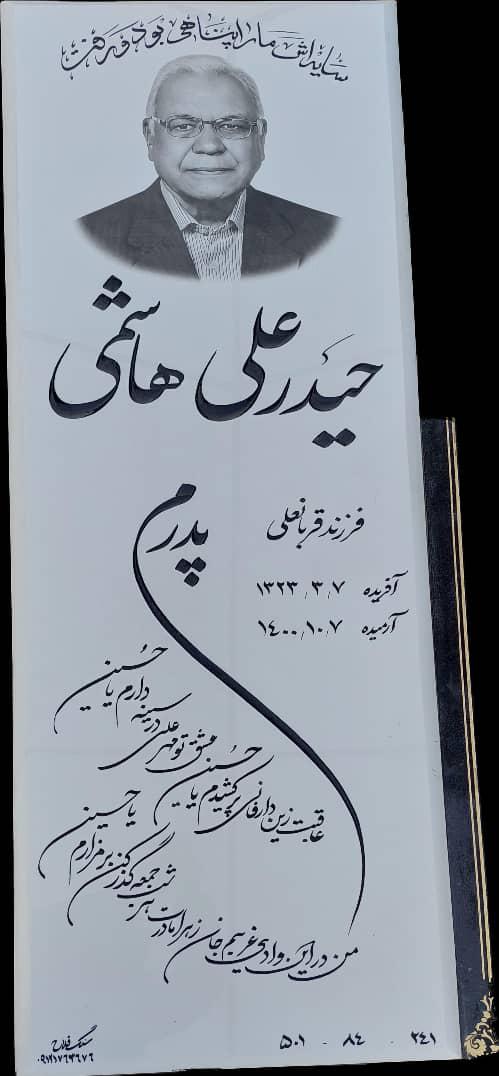 سایه‌اش ما را پناهی بود و رفت
حیدر علی هاشمی
فرزند قربانعلی
پدرم
آفریده ۱۳۲۳/۳/۷
آرمیده ۱۴۰۰/۱۰/۷
عشق تو و مهر علی در سینه دارم یا حسین
عاقبت زین دار فانی پر کشیدم یا حسین
من در این وادی غریبم جان زهرا مادرت
هر شب جمعه گذر کن بر مزارم یا حسین
۲۴۱ - ۸۴ - ۵۰۱
سنگ فلاح
۰۹۱۲۱۷۶۴۶۷۶